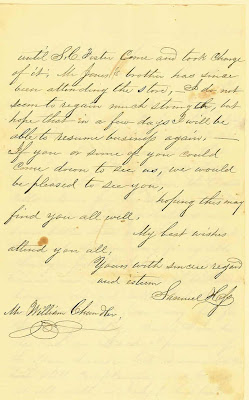 until S. C. Foster Come and took charge
of it; Mr Jones' brother has since
been attending the store, – I do not
seem to regain much strength, but
hope that in a few days I will be
able to resume business again, –
If you or some of you could
come down to see us, we would
be pleased to see you,
hoping this may
find you all well,
My best wishes
attend you all,
Yours with sincere regard
and esteem
Samuel
Mr William Chandler,